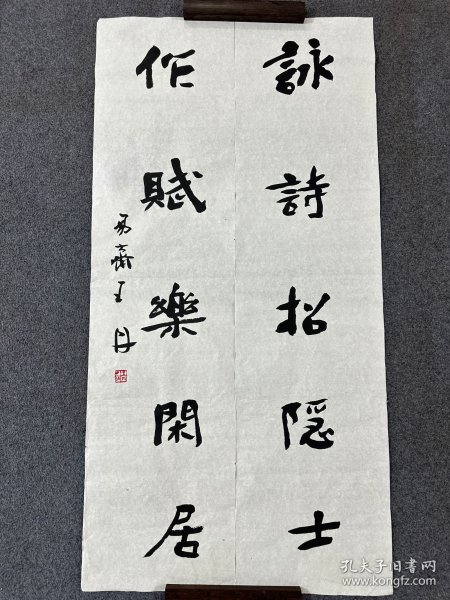 詠詩招隐士
作賦樂閑居
易齋王丹
孔夫子旧书网
www.kongfz.com